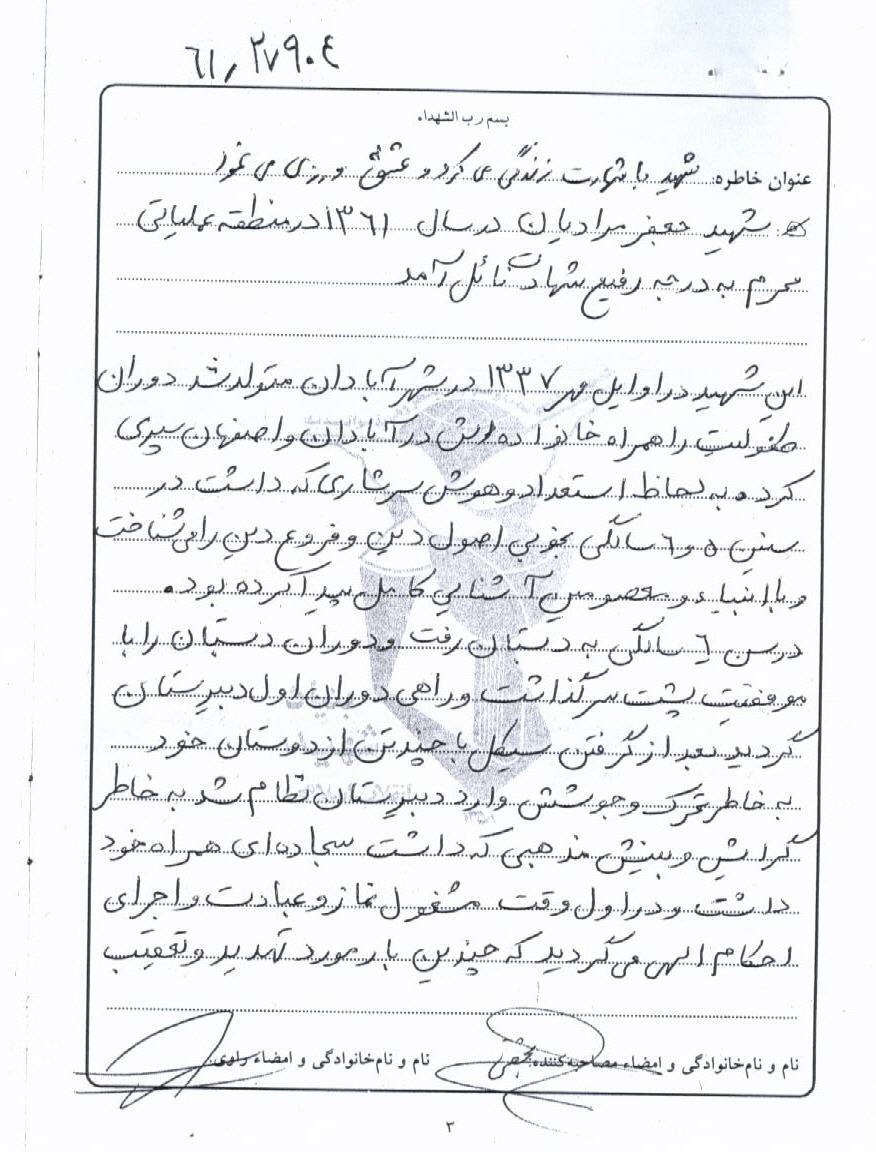 ۶۱٫۲۷۹۰۴
بسم رب الشهداء
عنوان خاطره: شهید با شهادت زندگی می کرد و عشق ورزی می نمود
شهید جعفر مرادیان در سال ۱۳۶۱ در منطقه عملیاتی
محرم به درجه رفیع شهادت نائل آمد
این شهید در اوایل مهر ۱۳۳۷ در شهر آبادان متولد شد دوران
طفولیت را همراه خانواده اش در آبادان و اصفهان سپری
کرد. به لحاظ استعداد و هوش سرشاری که داشت در
سنین ۵ و ۶ سالگی بخوبی اصول دین و فروع دین را می شناخت
و با انبیاء و معصومین آشنایی کامل پیدا کرده بود.
در سن ۶ سالگی به دبستان رفت و دوران دبستان را با
موفقیت پشت سر گذاشت و راهی دوران اول دبیرستان
گردید بعد از گرفتن سیکل با چند تن از دوستان خود
به خاطر تحرک و جوشش وارد دبیرستان نظام شد به خاطر
گرایش و بینش مذهبی که داشت سجاده ای همراه خود
داشت و در اول وقت مشغول نماز و عبادت و اجرای
احکام الهی می گردید که چندین بار مورد تهدید و تعقیب
نام و نام خانوادگی و امضاء مصاحبه کننده:
نام و نام خانوادگی و امضاء راوی:
۳